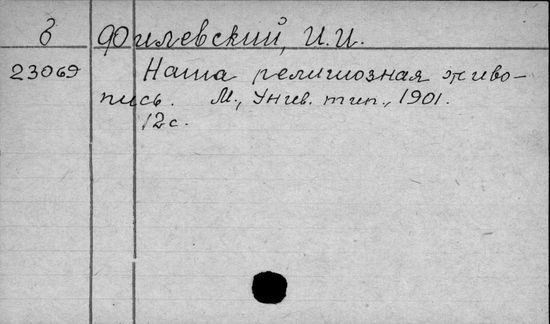 в Филевский, И.И.
23069 Наша религиозная живо-
пись. М., Унив. тип., 1901.
12 с.